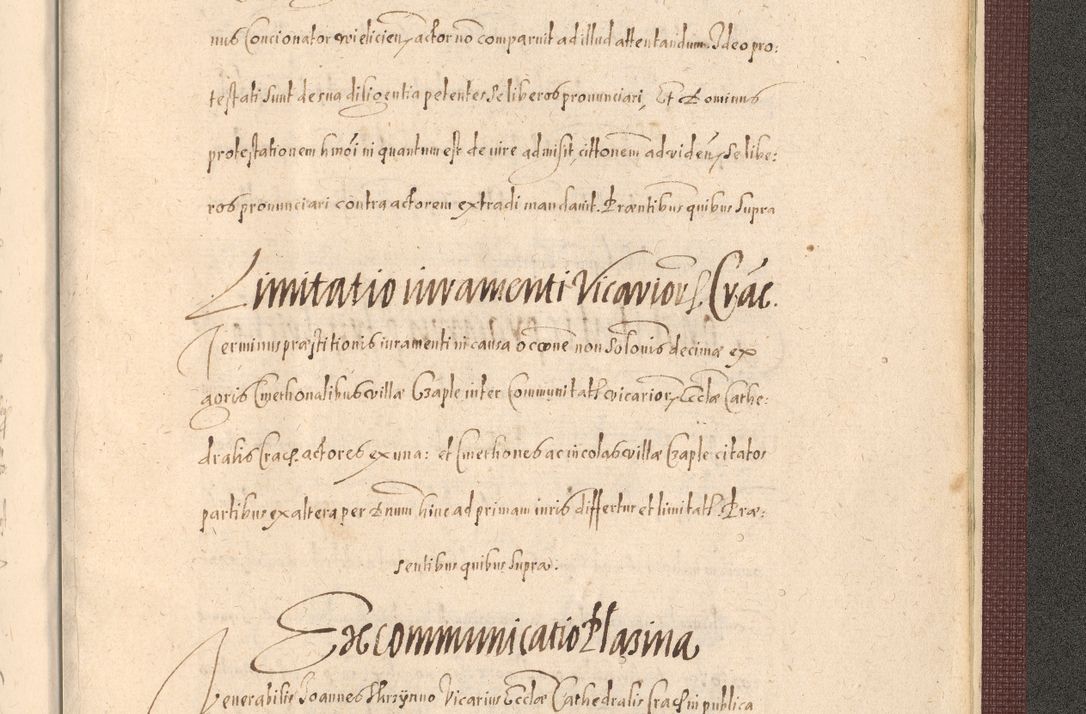 nus Concionator Wielicien, actor no comparuit ad illud attentandum. Ideo pro:
testati sunt de sua diligentia petentes se liberos pronunciari, Et Dominus
protestationem hmoi in quantum est de iure admisit, cittonem ad viden, se libe:
ros pronunciari contra actorem extradi mandavit. Præntibus quibus supra
Limitatio iuramenti Vicarior, Crac.
Terminus præstitionis iuramenti in causa occone non solonis decimæ ex
agris Cmethonalibus villæ Czaple inter Communitatt vicarior, Eccłæ Cathe:
dralis Crac. actores ex una: et Cmethones ac incolas villæ Czaple citatos
partibus ex altera per Dnum hinc ad primam iuris differtur et limitatt. Præ:
sentibus quibus supra.
Excommunicatio Płazina
Venerabilis Joannes Skrzynno Vicarius Eccłæ Cathedralis Crac in publica